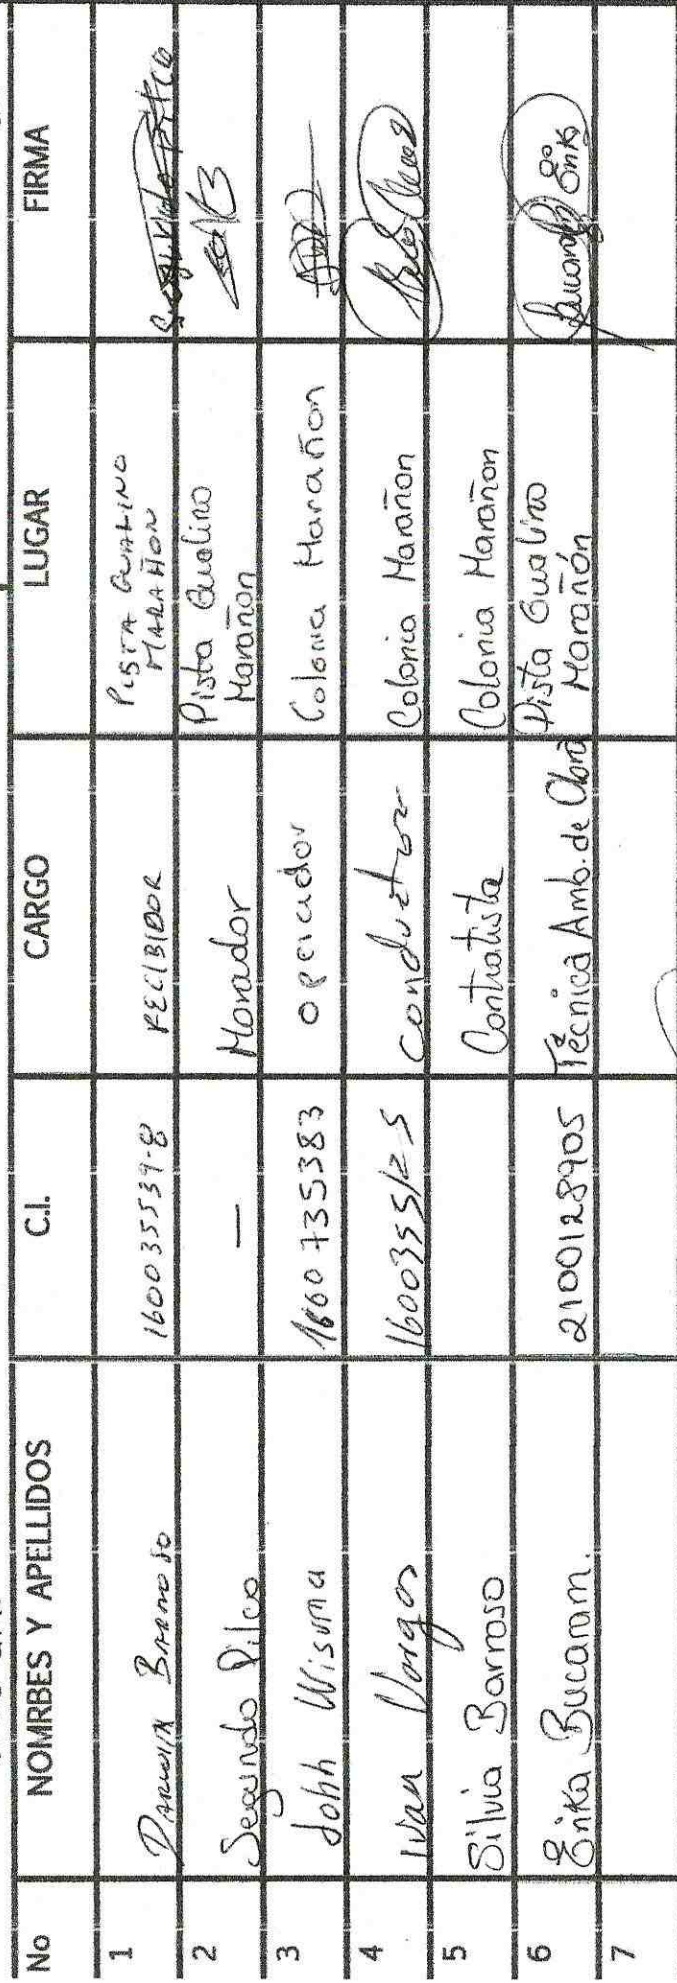 No NOMRBES Y APELLIDOS C.I. CARGO LUGAR FIRMA
1 Darwin Barroso 160035539-8 RECIBIDOR PISTA GUALINO
MARAÑON
2 Segundo Pilco — Morador Pista Gualino
Marañon
3 John Wisuma 1600735383 operador Colonia Marañon
4 Ivan Vargas 1600355125 conductor Colonia Marañon
5 Silvia Barroso Contratista Colonia Marañon
6 Erika Bucaram. 2100128905 Técnica Amb. de Obra Pista Gualino
Marañón
7